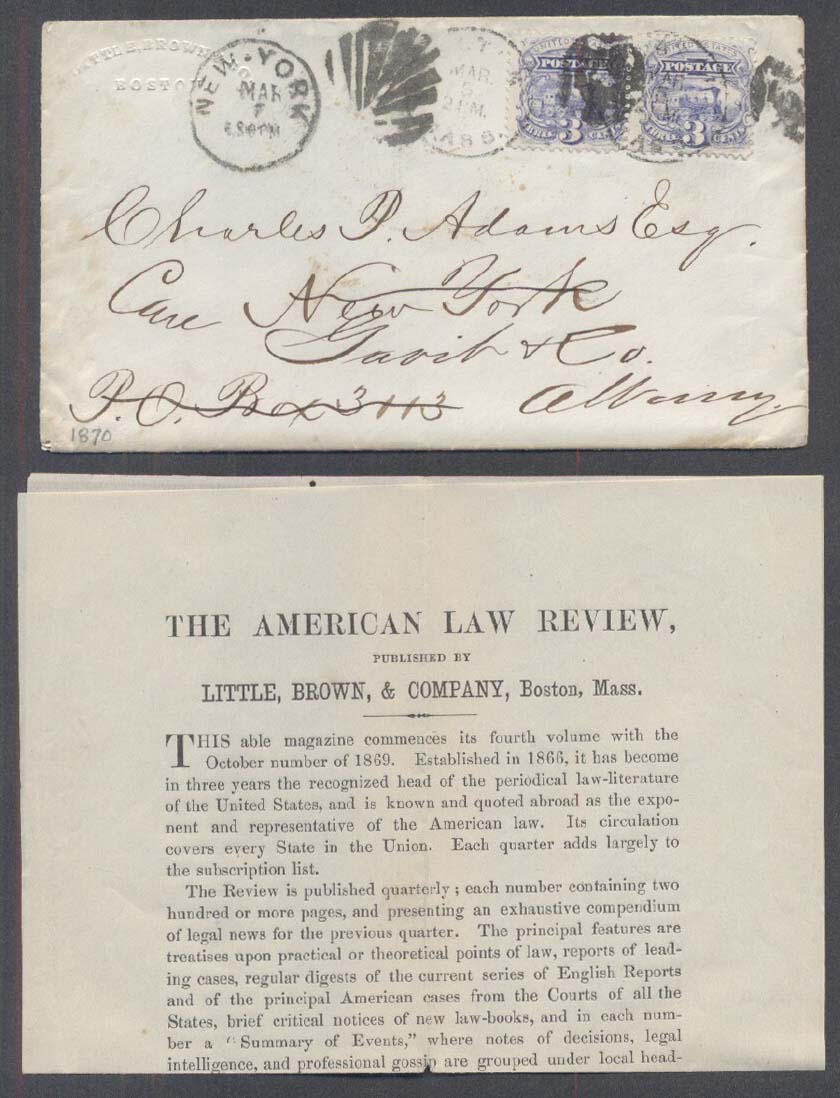 LITTLE, BROWN
BOSTON
NEW-YORK
MAR
7
6 30 PM
MAR.
2 P.M.
MASS.
UNITED STATES
POSTAGE
3
THREE CENTS
UNITED STATES
POSTAGE
3
THREE CENTS
Charles P. Adams Esq.
Care New York
Gavit & Co.
P.O. Box 3113 Albany.
1870
THE AMERICAN LAW REVIEW,
PUBLISHED BY
LITTLE, BROWN, & COMPANY, Boston, Mass.
THIS able magazine commences its fourth volume with the
October number of 1869. Established in 1866, it has become
in three years the recognized head of the periodical law-literature
of the United States, and is known and quoted abroad as the expo-
nent and representative of the American law. Its circulation
covers every State in the Union. Each quarter adds largely to
the subscription list.
The Review is published quarterly; each number containing two
hundred or more pages, and presenting an exhaustive compendium
of legal news for the previous quarter. The principal features are
treatises upon practical or theoretical points of law, reports of lead-
ing cases, regular digests of the current series of English Reports
and of the principal American cases from the Courts of all the
States, brief critical notices of new law-books, and in each num-
ber a "Summary of Events," where notes of decisions, legal
intelligence, and professional gossip are grouped under local head-